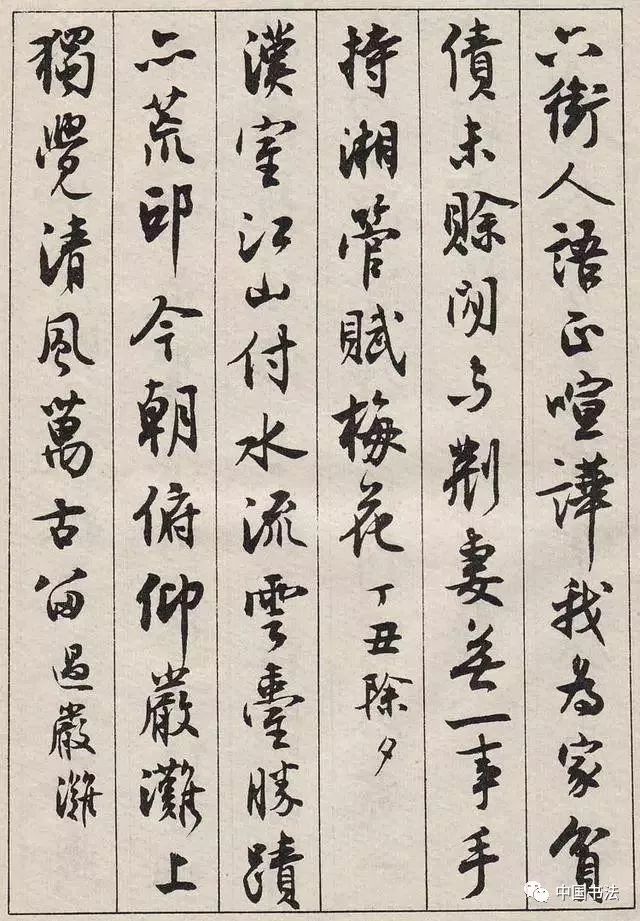 六街人語正喧譁我為家貧
債未賒閒与荆妻無一事手
持湘管賦梅花丁丑除夕
漢室江山付水流雲臺勝蹟
亦荒邱今朝俯仰嚴灘上
獨覺清風萬古留過嚴灘
中国书法